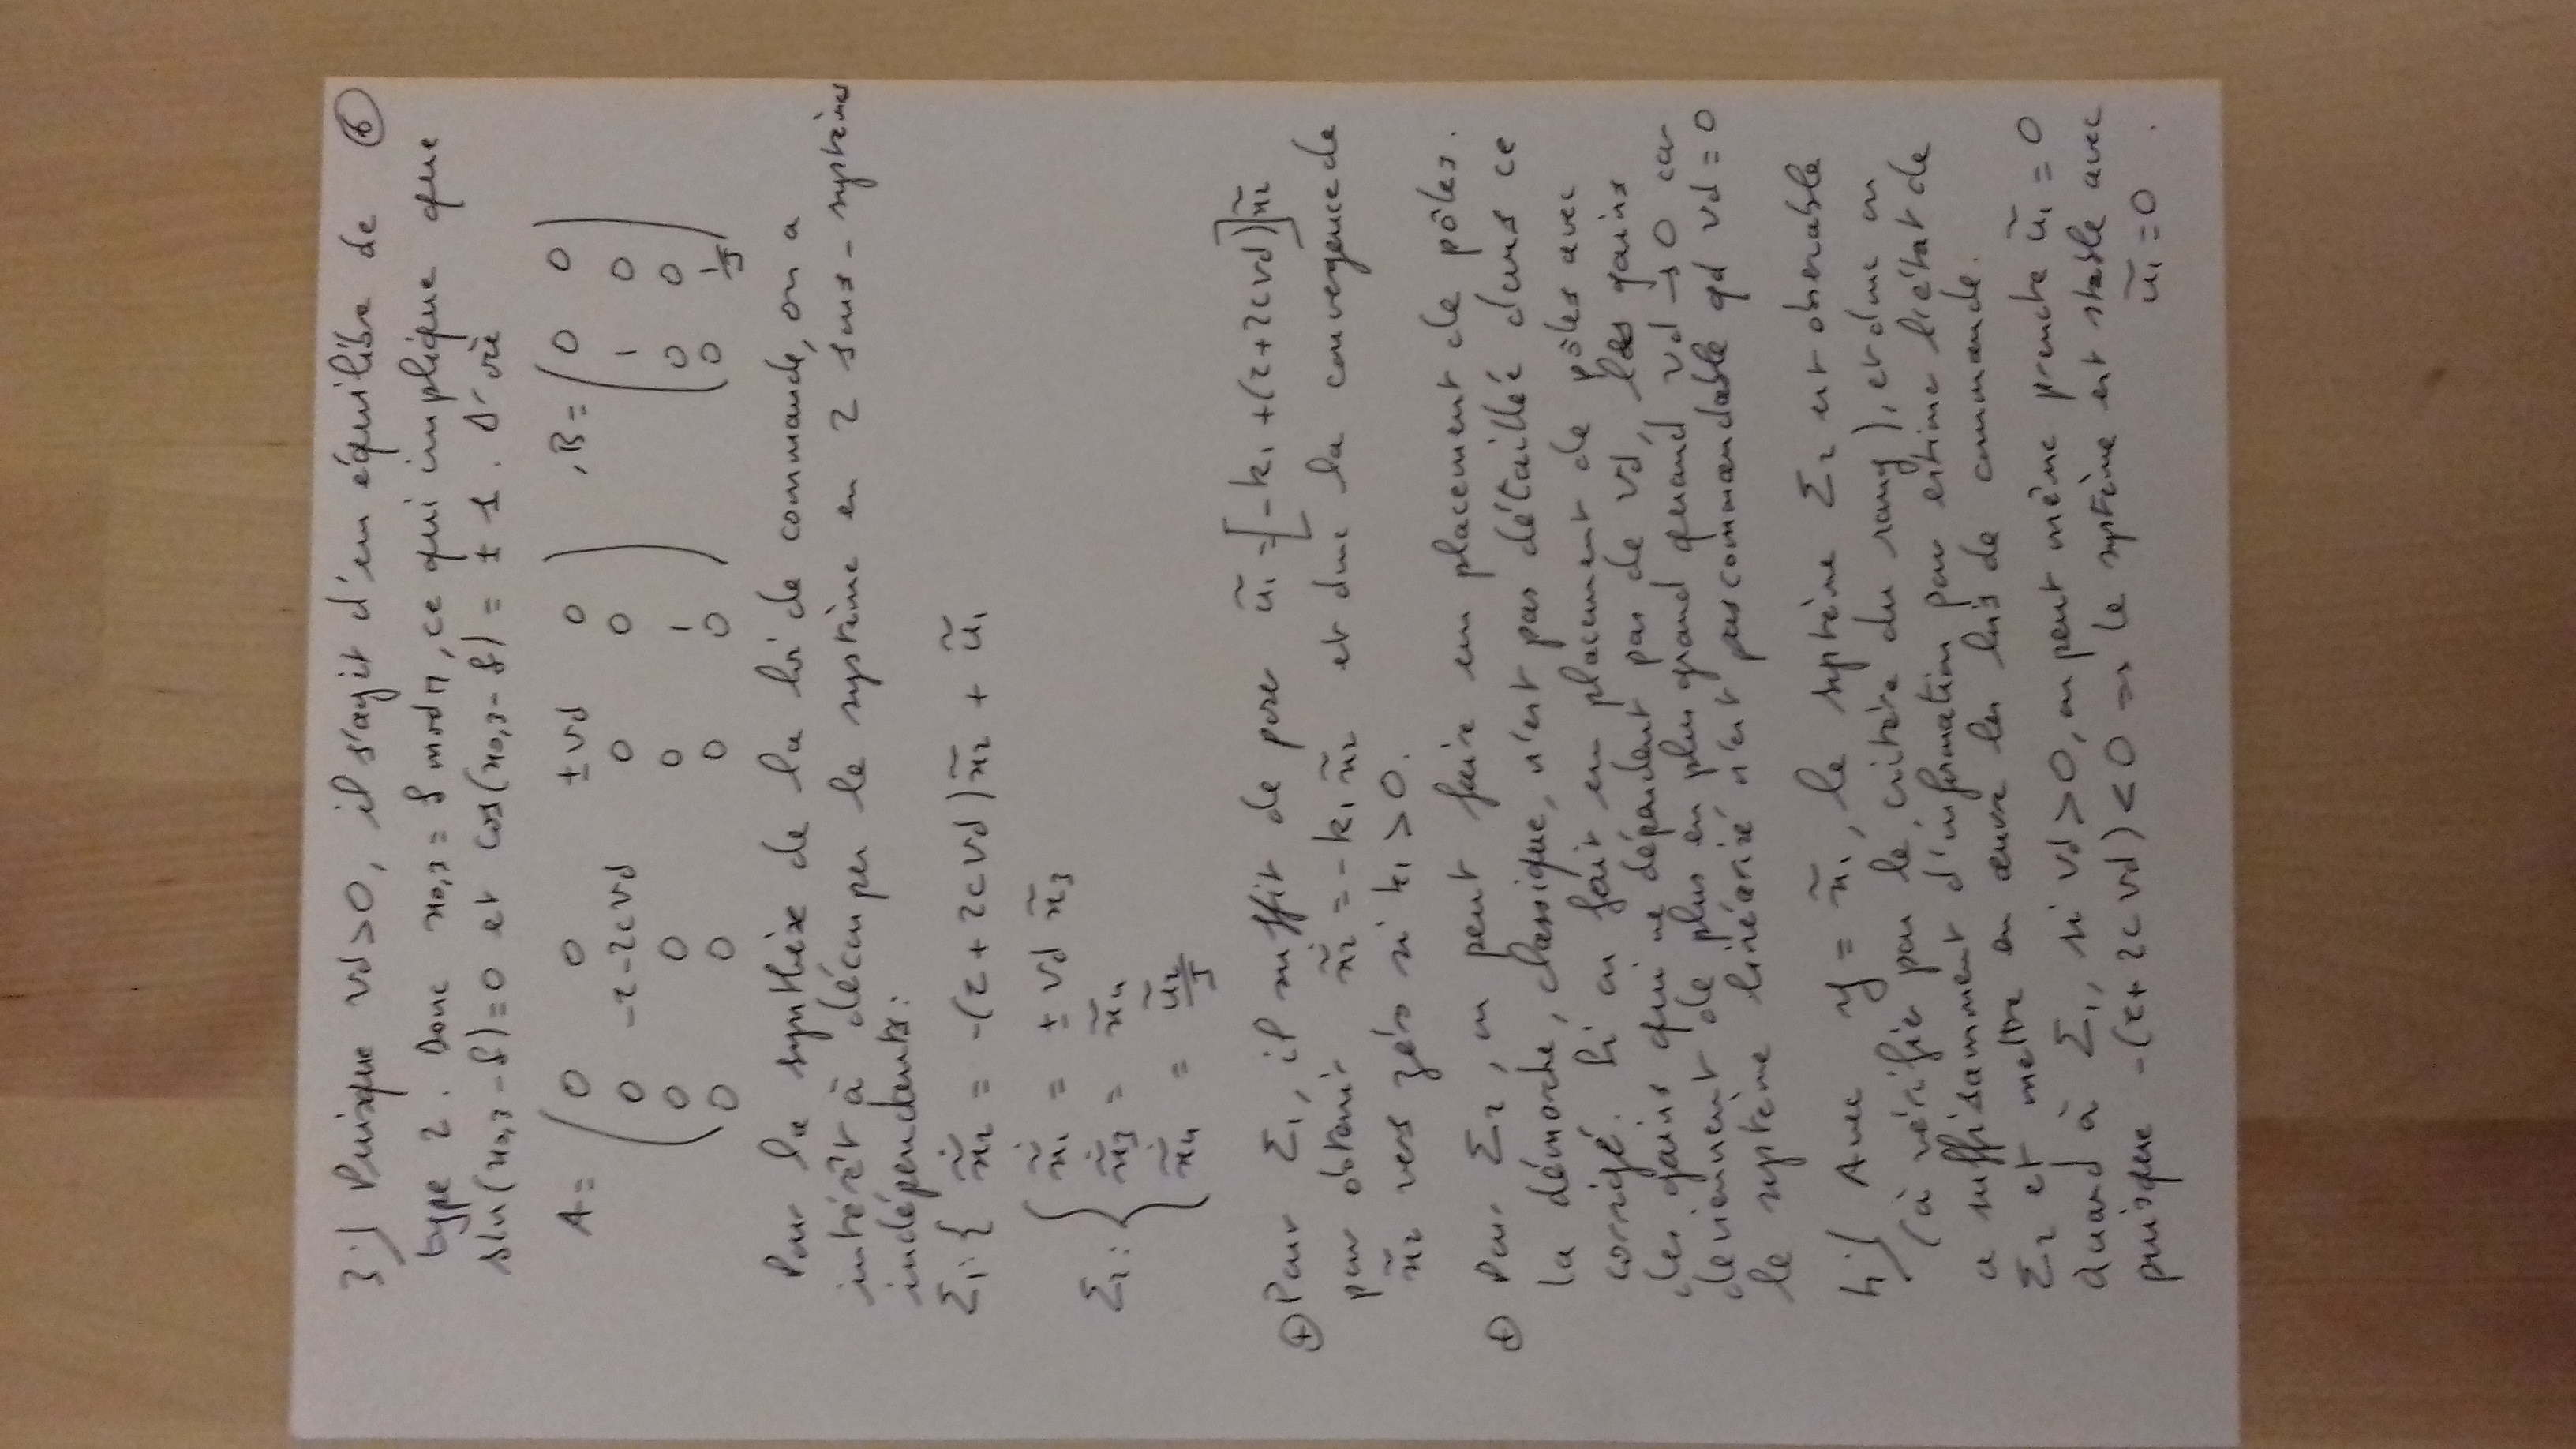 3.) Puisque vd > 0, il s'agit d'un équilibre de ⑥
type 2. Donc x0,3 = δ mod π, ce qui implique que
sin(x0,3 - δ) = 0 et cos(x0,3 - δ) = ± 1. D'où
A = ( 0 0 ±vd 0 ) , B = ( 0 0 )
0 -τ-2cvd 0 0 1 0
0 0 0 1 0 0
0 0 0 0 0 1/J
Pour la synthèse de la loi de commande, on a
intérêt à découper le système en 2 sous-systèmes
indépendents :
Σ1 : { ẋ̃2 = -(τ + 2cvd) x̃2 + ũ1
Σ2 : { ẋ̃1 = ± vd x̃3
ẋ̃3 = x̃4
ẋ̃4 = ũ2/J
⊕ Pour Σ1, il suffit de poser ũ1 = [-k1 + (τ+2cvd)] x̃2
pour obtenir ẋ̃2 = -k1 x̃2 et donc la convergence de
x̃2 vers zéro si k1 > 0.
⊕ Pour Σ2, on peut faire un placement de pôles.
La démarche, classique, n'est pas détaillée dans ce
corrigé. Si on fait un placement de pôles avec
des gains qui ne dépendent pas de vd, les gains
deviennent de plus en plus grand quand vd → 0 car
le système linéarisé n'est pas commandable qd vd = 0
4.) Avec y = x̃1, le système Σ2 est observable
(à vérifier par le critère du rang), et donc on
a suffisamment d'information pour estimer l'état de
Σ2 et mettre en œuvre les lois de commande.
Quand à Σ1, si vd > 0, on peut même prendre ũ1 = 0
puisque -(τ + 2cvd) < 0 ⇒ le système est stable avec
ũ1 = 0.